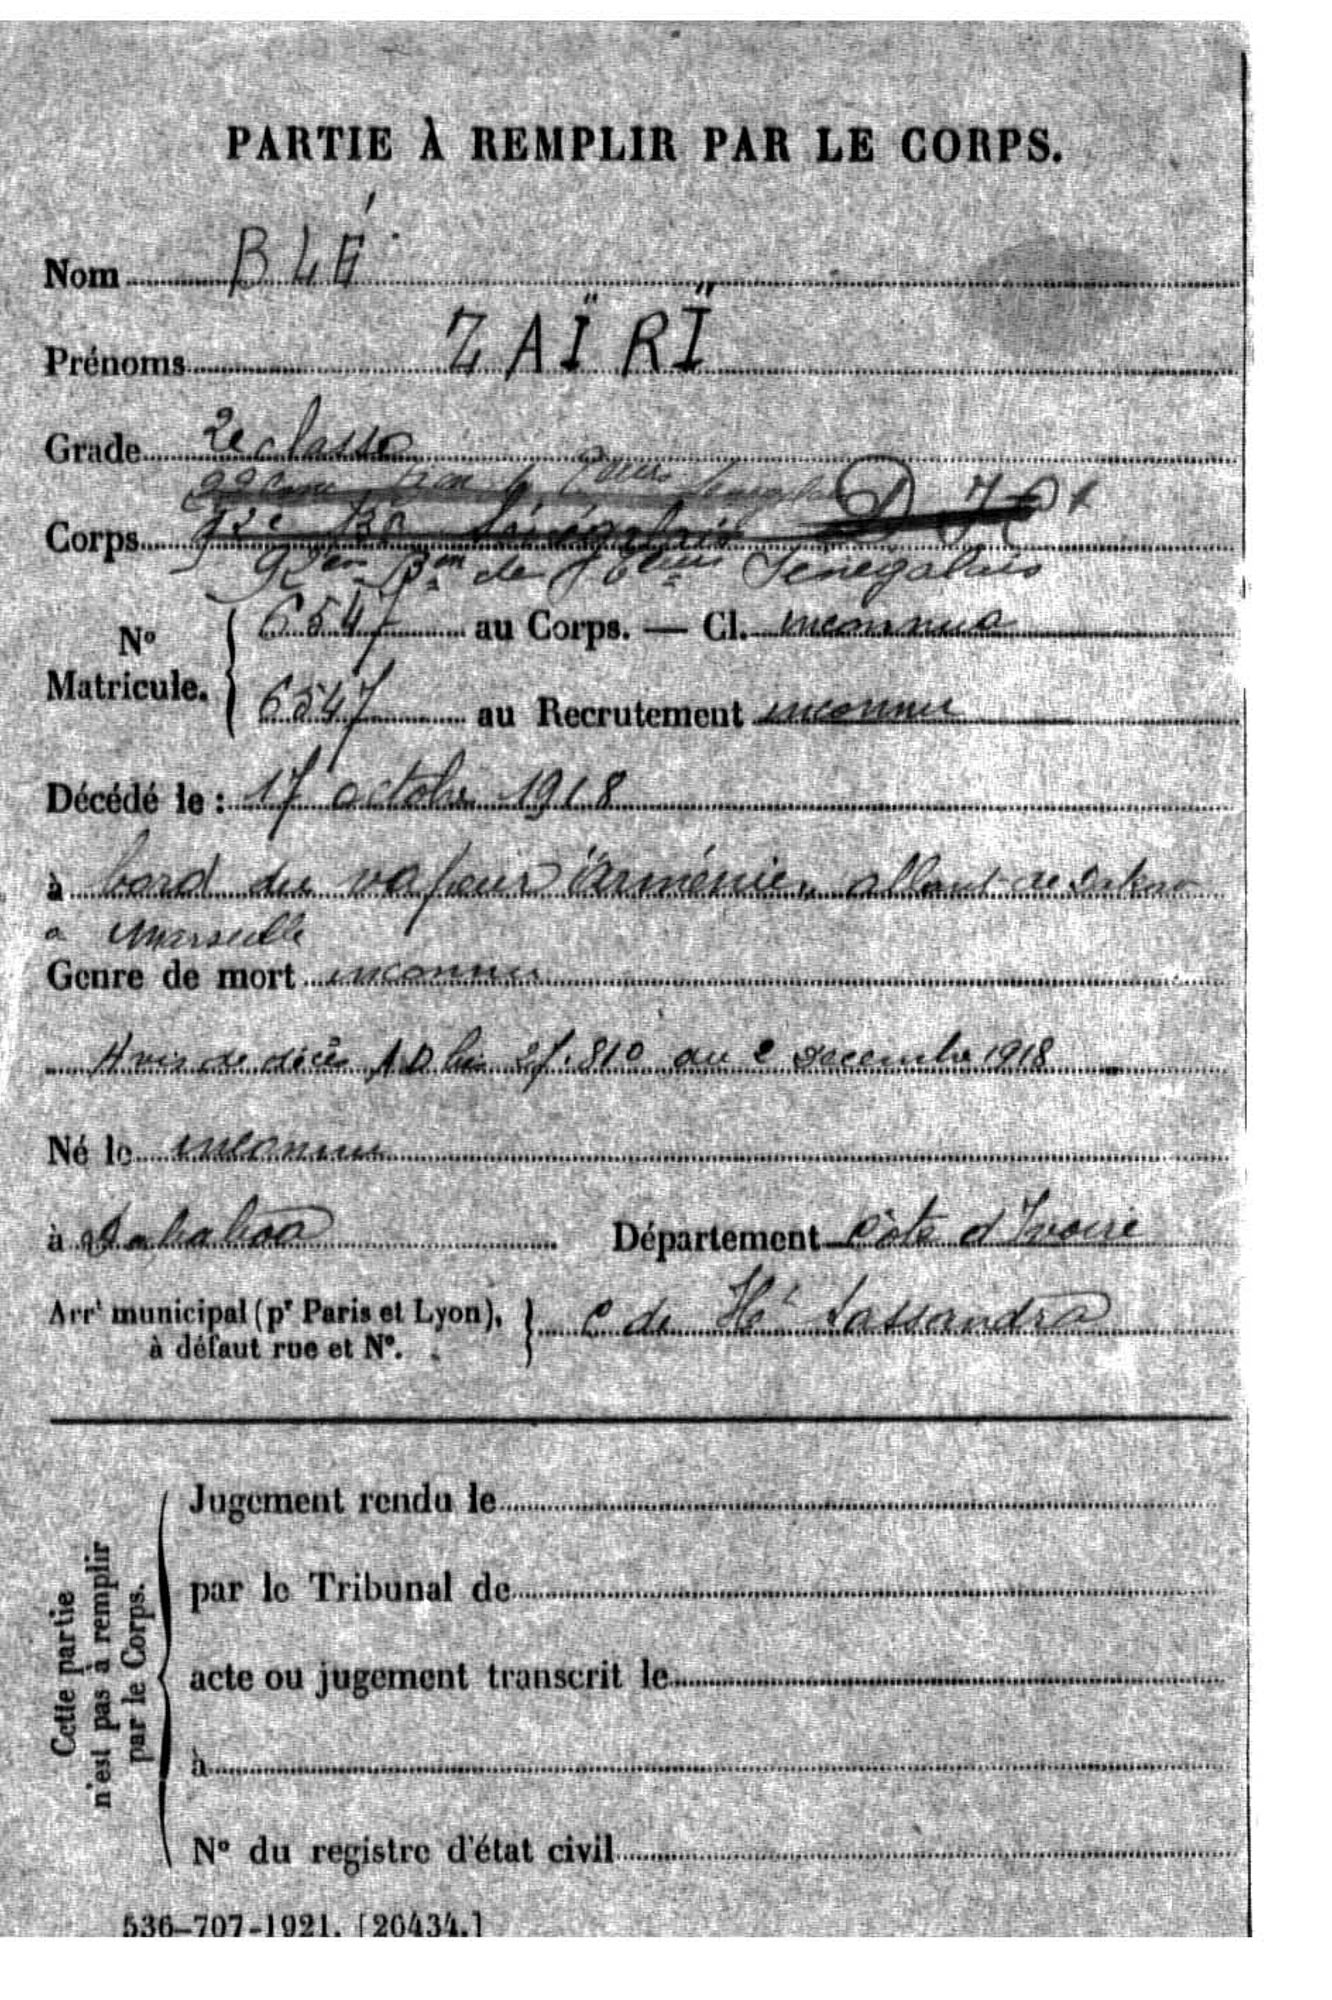 PARTIE À REMPLIR PAR LE CORPS.
Nom BLÉ
Prénoms ZAÏRÏ
Grade 2e classe
Corps 92e Bn Sénégalais
92em Bon de Teurs Sénégalais
No Matricule. 6547 au Corps. — Cl. inconnue
6547 au Recrutement inconnu
Décédé le : 17 octobre 1918
à bord du vapeur "Arménie" allant de Dakar
a Marseille
Genre de mort inconnu
Avis de décès AD 27.810 du 2 Decembre 1918
Né le inconnu
à Département Côte d'Ivoire
Arrt municipal (pr Paris et Lyon), à défaut rue et No. C de Ht Sassandra
Cette partie n'est pas à remplir par le Corps.
Jugement rendu le
par le Tribunal de
acte ou jugement transcrit le
à
No du registre d'état civil
536-707-1921. [26434.]